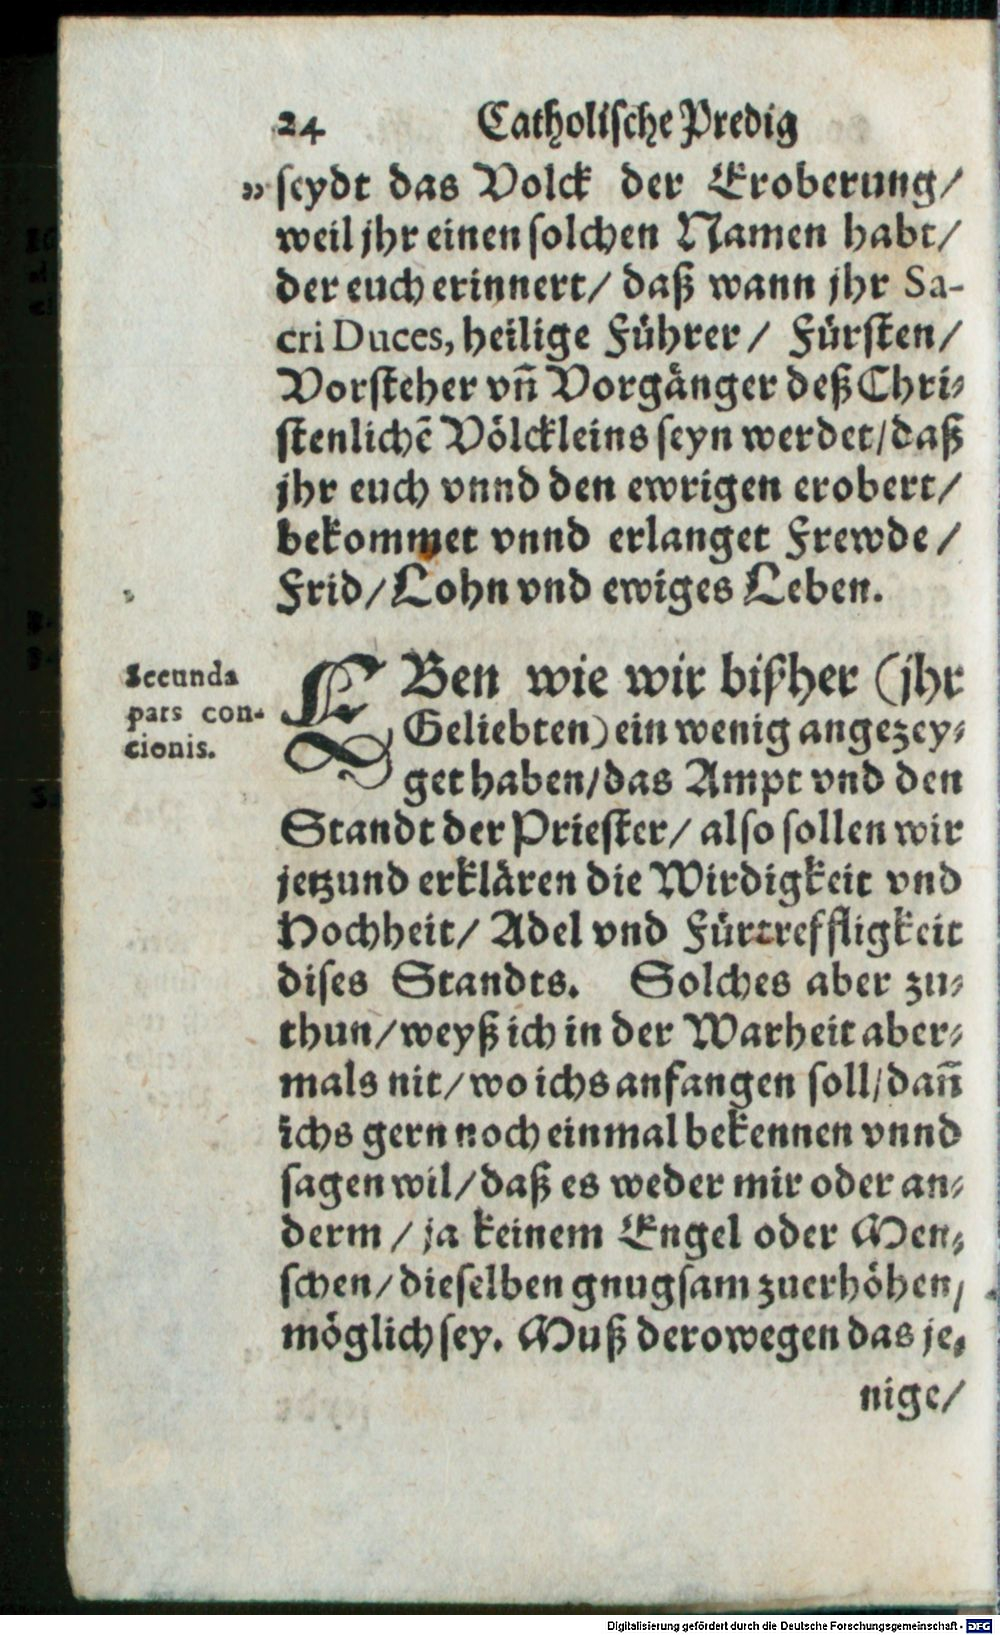 24 Catholische Predig
„ seydt das Volck der Eroberung/
weil jhr einen solchen Namen habt/
der euch erinnert/ daß wann jhr Sa-
cri Duces, heilige Führer/ Fürsten/
Vorsteher vñ Vorgänger deß Chri-
stenlichẽ Völckleins seyn werdet/daß
jhr euch vnnd den ewrigen erobert/
bekommet vnnd erlanget Frewde/
Frid/ Lohn vnd ewiges Leben.
Secunda
pars con-
cionis.
EBen wie wir bißher (jhr
Geliebten) ein wenig angezey-
get haben/das Ampt vnd den
Standt der Priester/ also sollen wir
jetzund erklären die Wirdigkeit vnd
Hochheit/ Adel vnd Fürtreffligkeit
dises Standts. Solches aber zu-
thun/weyß ich in der Warheit aber-
mals nit/wo ichs anfangen soll/dañ
ichs gern noch einmal bekennen vnnd
sagen wil/daß es weder mir oder an-
derm/ ja keinem Engel oder Men-
schen/dieselben gnugsam zuerhöhen/
möglich sey. Muß derowegen das je-
nige/
Digitalisierung gefördert durch die Deutsche Forschungsgemeinschaft - DFG